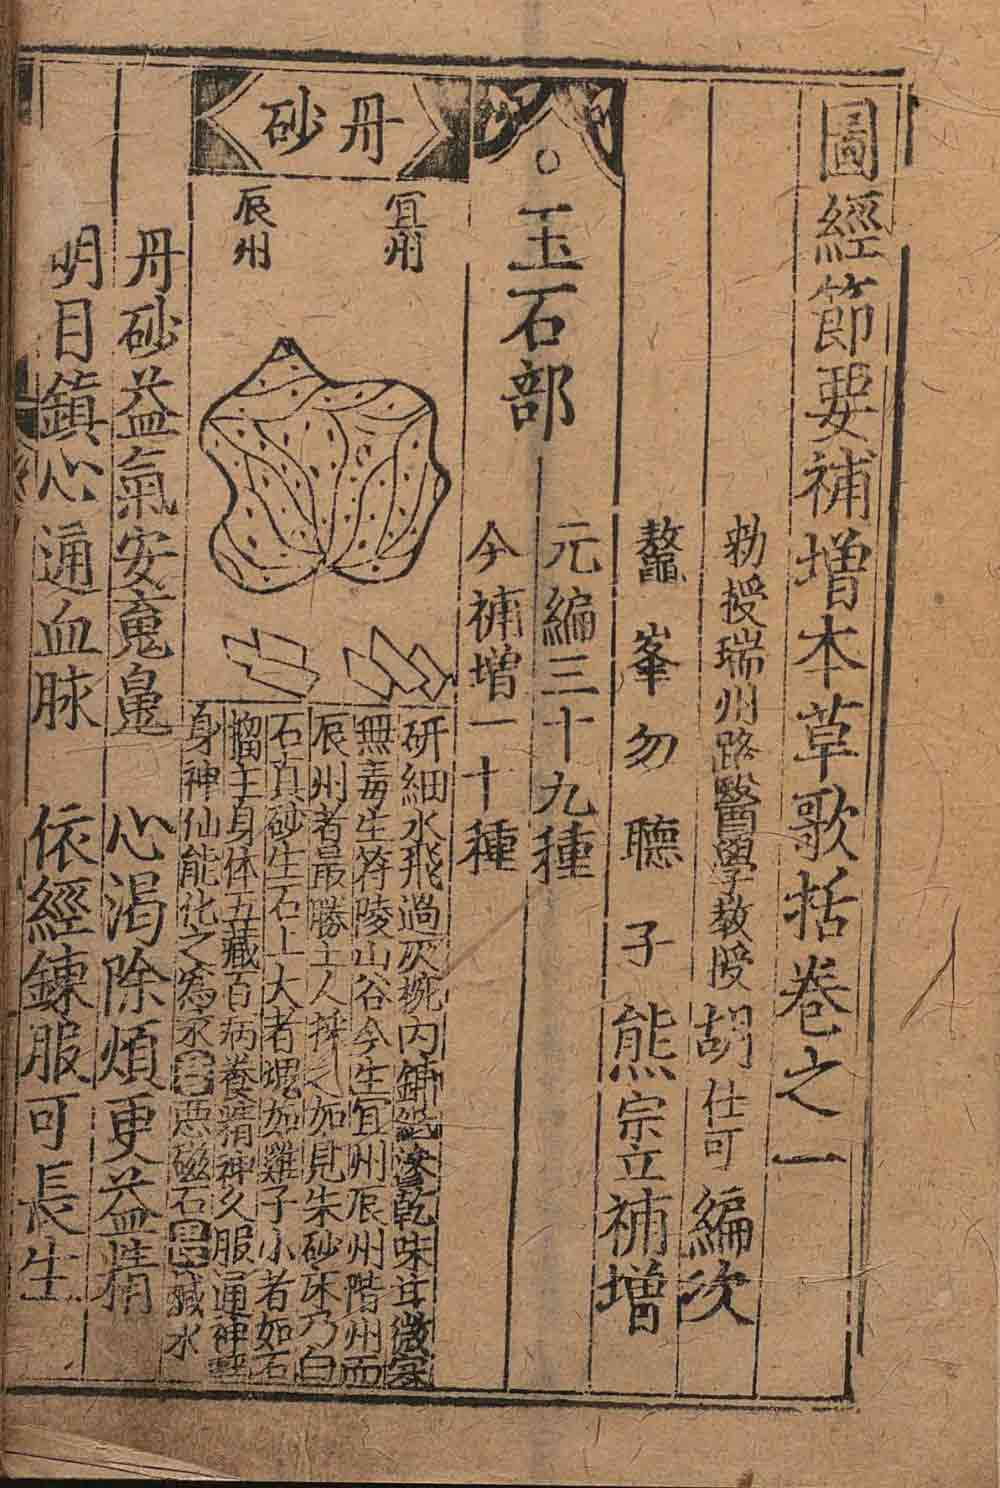 圖經節要補增本草歌括卷之一
勑授瑞州路醫學教授胡仕可編次
鼇峯勿聽子熊宗立補增
○玉石部
元編三十九種
今補增一十種
丹砂
宜州
辰州
研細水飛過灰椀内鋪紙滲乾味甘微寒
無毒生符陵山谷今生宜州辰州階州而
辰州者最勝土人採之加見朱砂床乃白
石真砂生石上大者塊如雞子小者如石
榴主身体五藏百病養精神久服通神
身神仙能化之為汞 惡磁石 醎水
丹砂益氣安䰟䰟 心渴除煩更益精
明目鎮心通血脉 依經鍊服可長生